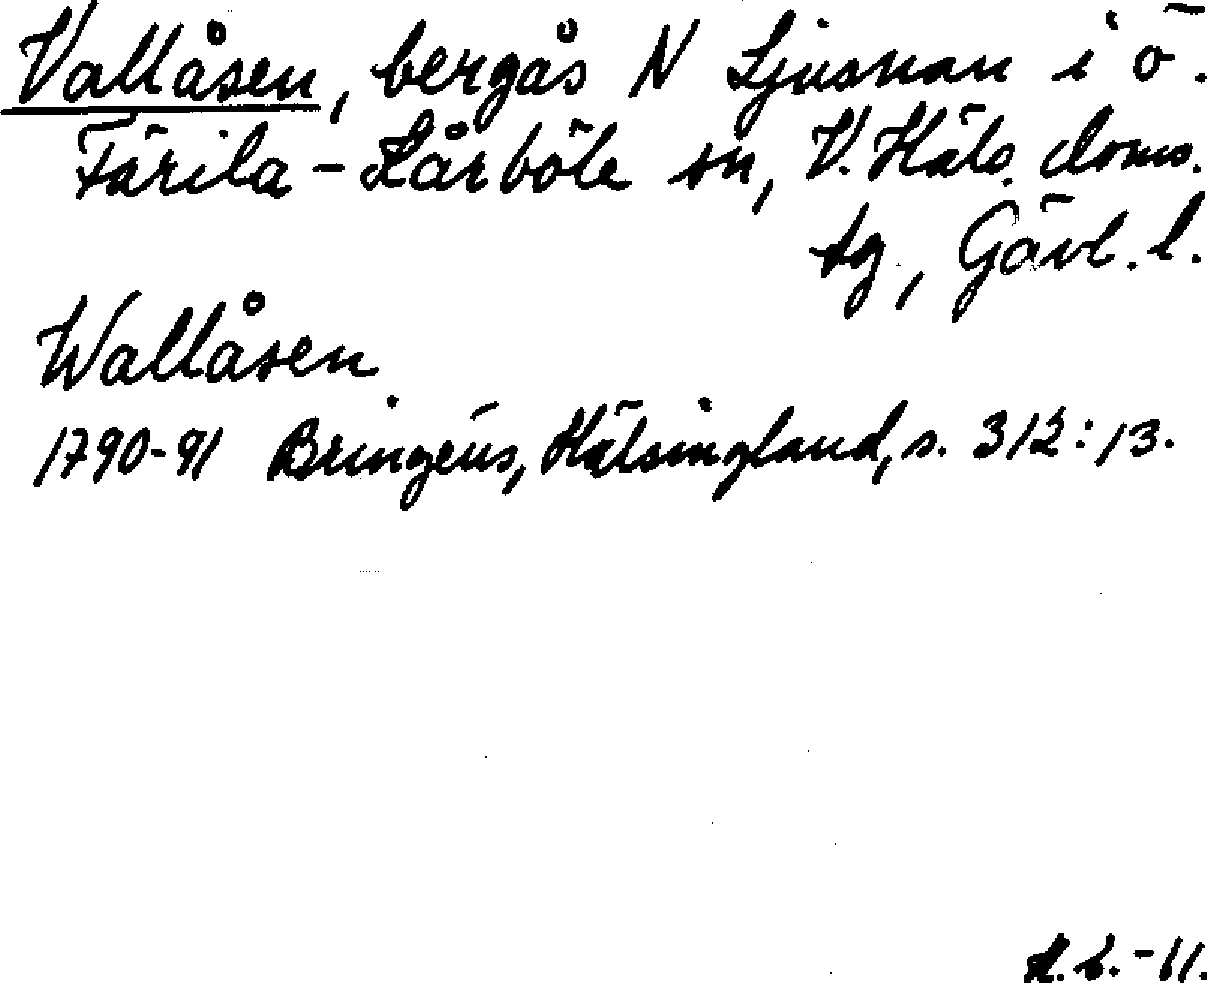 Vallåsen, bergås N Ljusnan i ö.
Färila-Kårböle sn, V. Häls. doms.
tg, Gävl. l.
Wallåsen
1790-91 Bringéus, Hälsingland, s. 312:13.